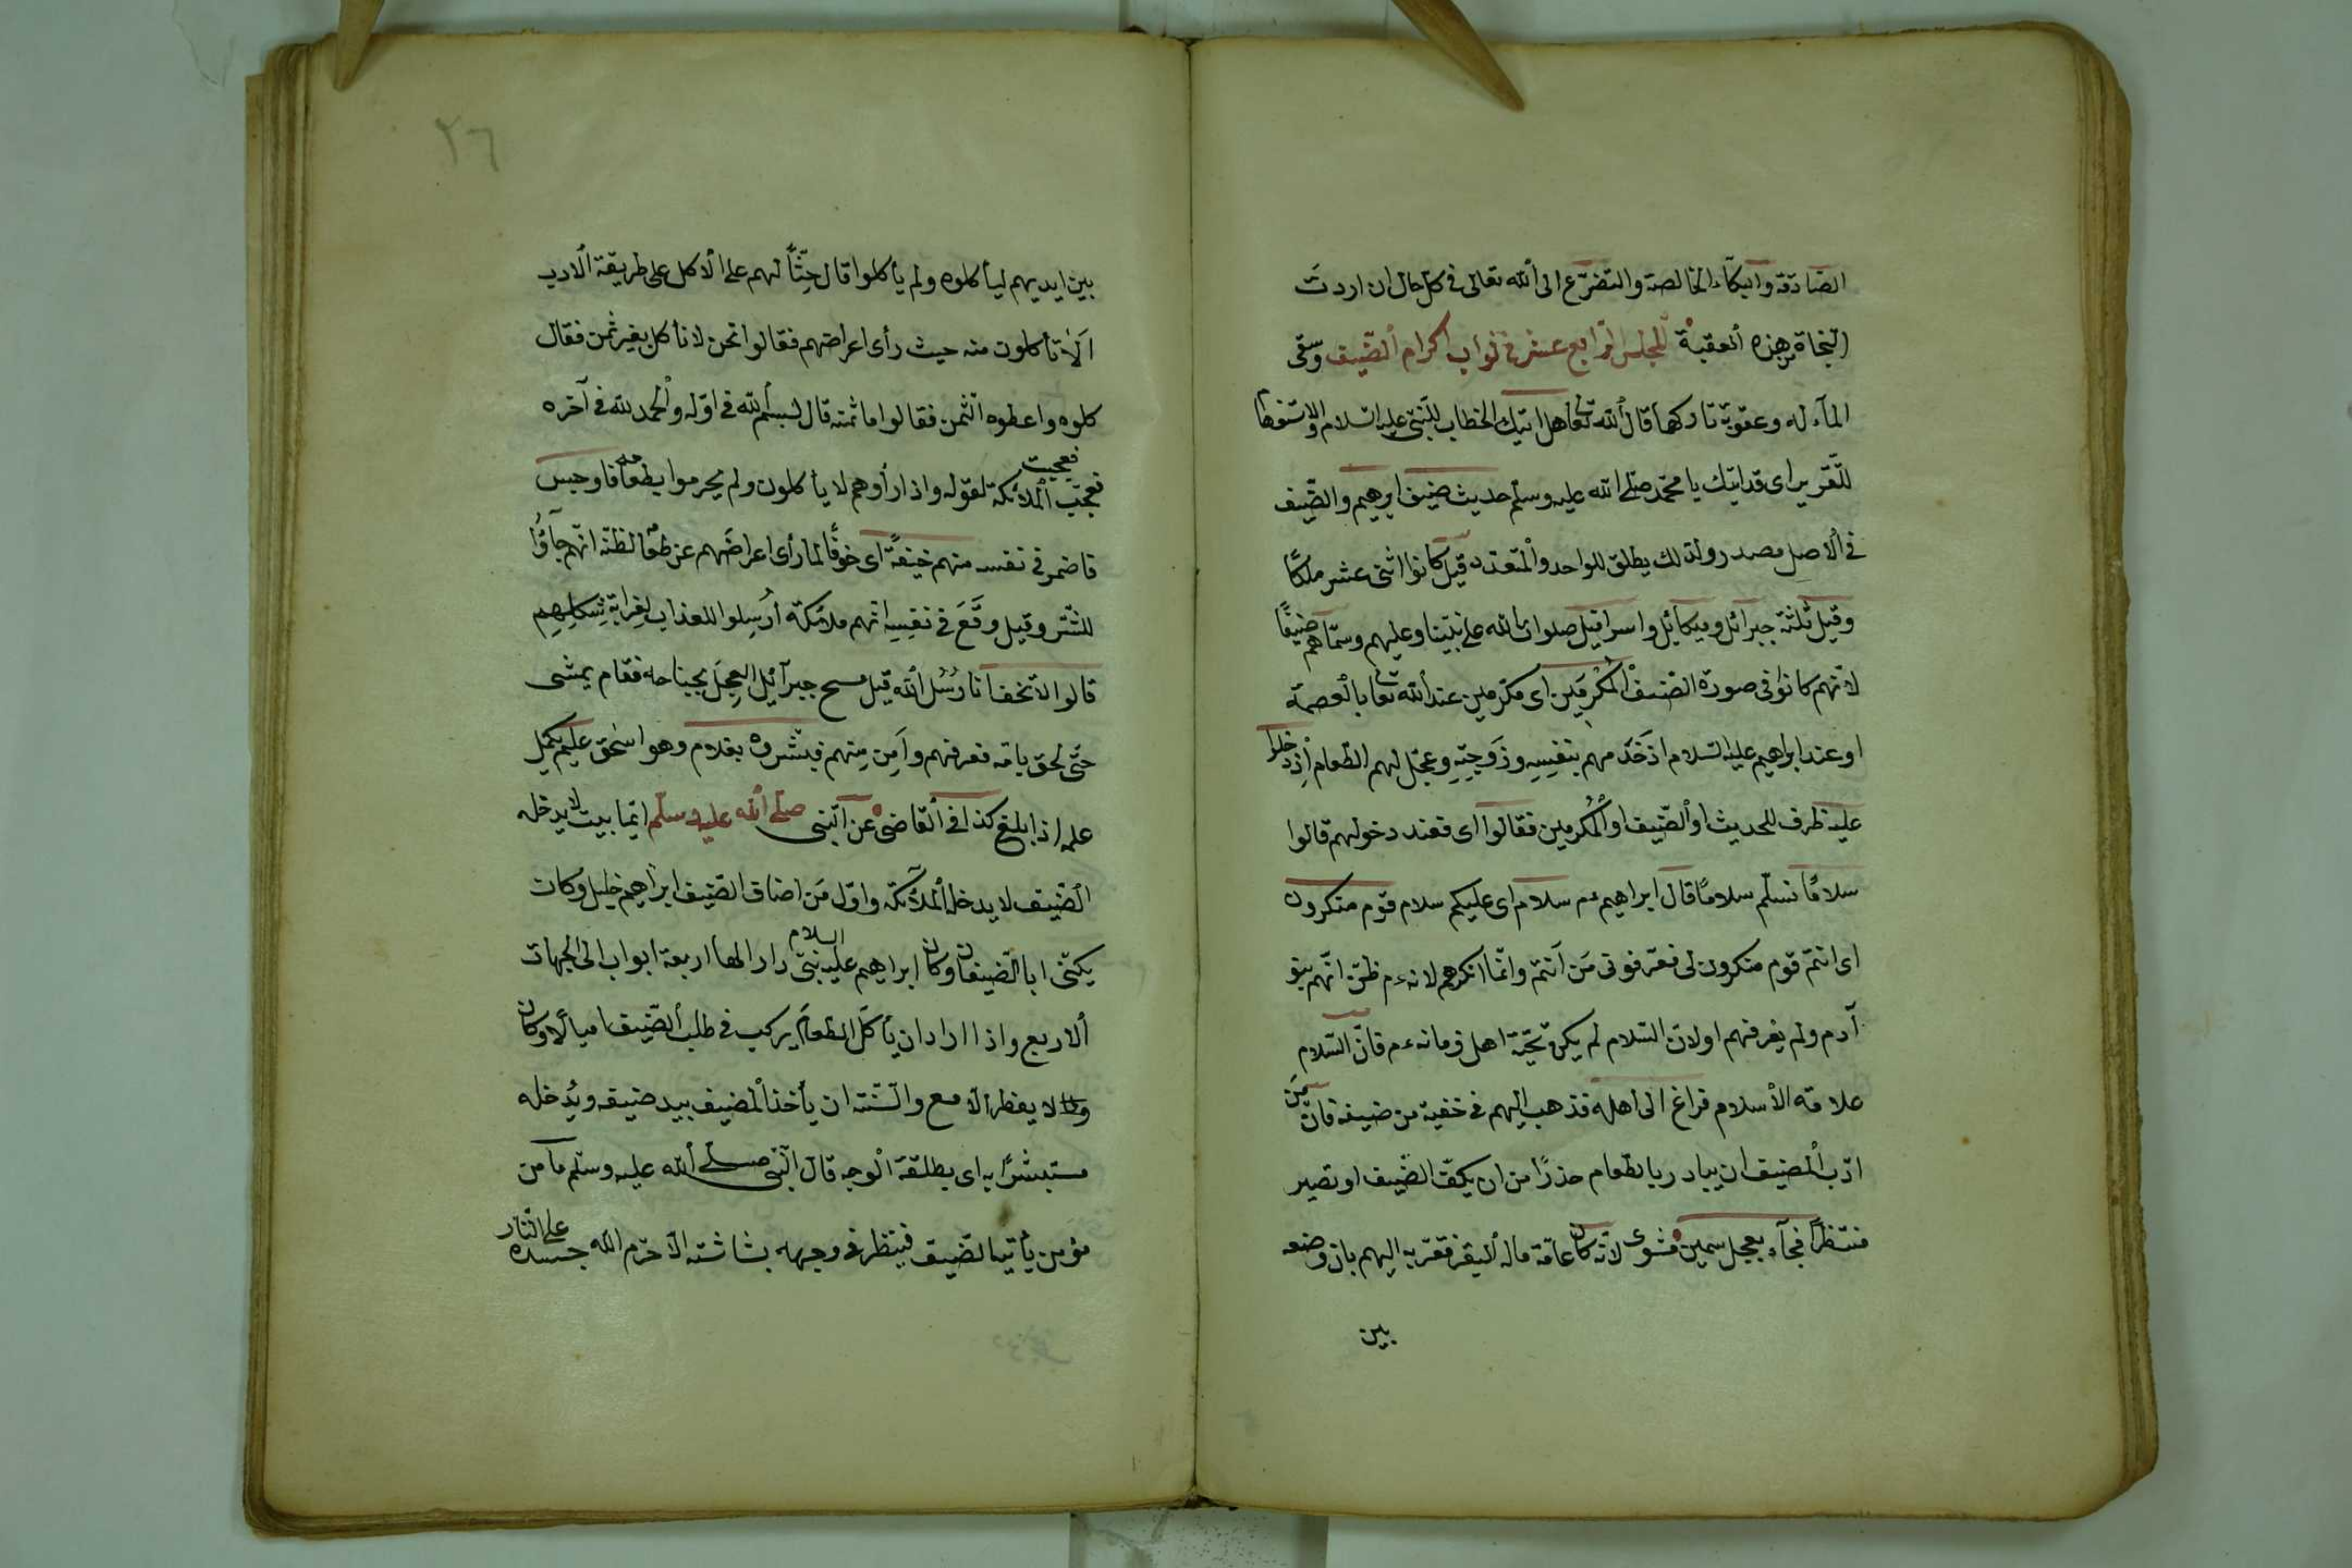 الصادقة والبكآء الخالصة والتضرّع الى الله تعالى فى كل حال ان اردتَ
النجاة من هذه العقبة المجلس الرابع عشر فى ثواب اكرام الضّيف وسقى
المآء له وعقوبة تاركها قال الله تعا هل اتيك الخطاب للنّبىّ عليه السلام والاستفها
للتّقرير اى قد اتيك يا محمّد صلّى الله عليه وسلّم حديث ضيف ابرهيم والضّيف
فى الاصل مصدر ولذلك يطلق للواحد والمتعدد قيل كانوا اثنى عشر ملكًا
وقيل ثلثة جبرائل وميكائيل واسرافيل صلوات الله على نبيّنا وعليهم وسمّاهم ضيفًا
لانهم كانوا فى صورة الضيف المُكْرَمين اى مكرّمين عند الله تعا بالعصمة
او عند ابراهيم عليه السلام اذ خَدَمهم بنفسِه وزَوجتِهِ وعجّل لهم الطّعام اِذ دخلوا
عليه ظرف للحديث او الضّيف او المُكرمين فقالوا اى فعند دخولهم قالوا
سلامًا نسلّم سلامًا قال ابراهيم عم سلام اى عليكم سلام قوم منكرون
اى انتم قوم منكرون لى فعرّفونى مَن اَنتم وانّما انكرهم لانه عم ظنّ انّهم بنو
آدم ولم يعرفهم او لانّ السّلام لم يكن تحيّة اهل زمانه عم فانّ السّلام
علامة الاسلام فراغ الى اهله فذهب اليهم فى خفية من ضيفه فانّ مِن
ادب المُضيف ان يبادر بالطعام حذرًا من ان يكفّ الضّيف او تصير
منتظرًا فجآء بعجل سمين مشوى لانّه كان عامّة ماله البقر فقرّبه اليهم بان وضعه
بين
٢٦
بين ايديهم ليأكلوه ولم يأكلوا قال حِثًّا لهم على الاكل على طريقة الادب
اَلَا تأكلون منه حيث رأى اعراضهم فقالوا نحن لا نأكل بغير ثمن فقال
كلوه واعطوه الثّمن فقالوا ما ثمنه قال لبسم الله فى اوّله والحمد لله فى آخره
فعجبت
فعجب الملائكة لقوله واذا رأوهم لا يأكلون ولم يحرموا بطعامه فاوجس
فاضمر فى نفسه منهم خيفةً اى خوفًا لما رأى اعراضَهم عن طعامه لظنّه انّهم جآؤُا
للشّر وقيل وقَعَ فى نفسِه انّهم ملائكة اُرسِلوا للعذاب لِغرابة شكلِهِم
قالوا لا تخف انّا رُسُل الله قيل مسح جبرآئل العِجلَ بجناحه فقام يمشى
حتّى لحق بامّه فعرفهم واَمِن مِنهم فبشّروه بغلام وهو اسحق عليم يكمل
علمه اذا بلغ كذا فى القاضى عن النبى صلى الله عليه وسلم ايّما بيت لا يدخله
الضّيف لا يدخله الملآئكة واوّل مَن اضاف الضّيف ابراهيم خليل وكان
يكنّى ابا الضّيفان وكان ابراهيم عليه السلام بنى دارا لها اربعة ابواب الى الجهات
الاربع واذا اراد ان يأكل الطعام يركب فى طلب الضّيف اميالًا وكان
لا يفطر الّا مع والسّنّة ان يأخذ المُضيف بيد ضيفه ويُدخله
مستبشرًا به اى بطلقة الوجه قال النّبى صلى الله عليه وسلّم ما من
مؤمن يأتيه الضّيف فينظر فى وجهه بشاشته الّا حرّم الله جسده على النّار